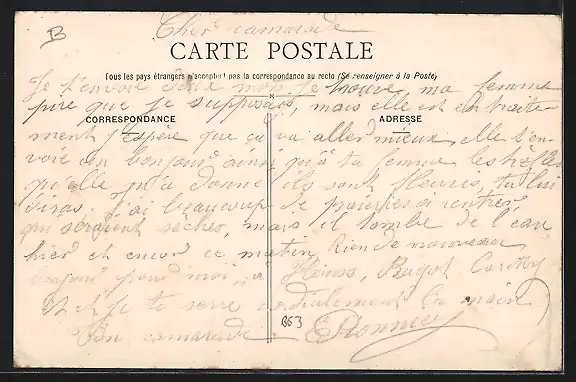 B
Cher camarade
CARTE POSTALE
Tous les pays étrangers n'acceptent pas la correspondance au recto (Se renseigner à la Poste)
Je t'envoie deux mots. Je trouve ma femme
pire que je supposais, mais elle est en traite-
CORRESPONDANCE
ADRESSE
ment j'espère que ça va aller mieux, elle t'en-
voie un bonjour ainsi qu'à ta femme les
qu'elle m'a donné ils sont fleuris, tu lui
diras. J'ai beaucoup de prairies à rentrer
qui seraient sèches, mais il tombe de l'eau
hier et encore ce matin. Rien de nouveau
bonjour pour moi, à
Et je te serre cordialement la main
Ton camarade
B63